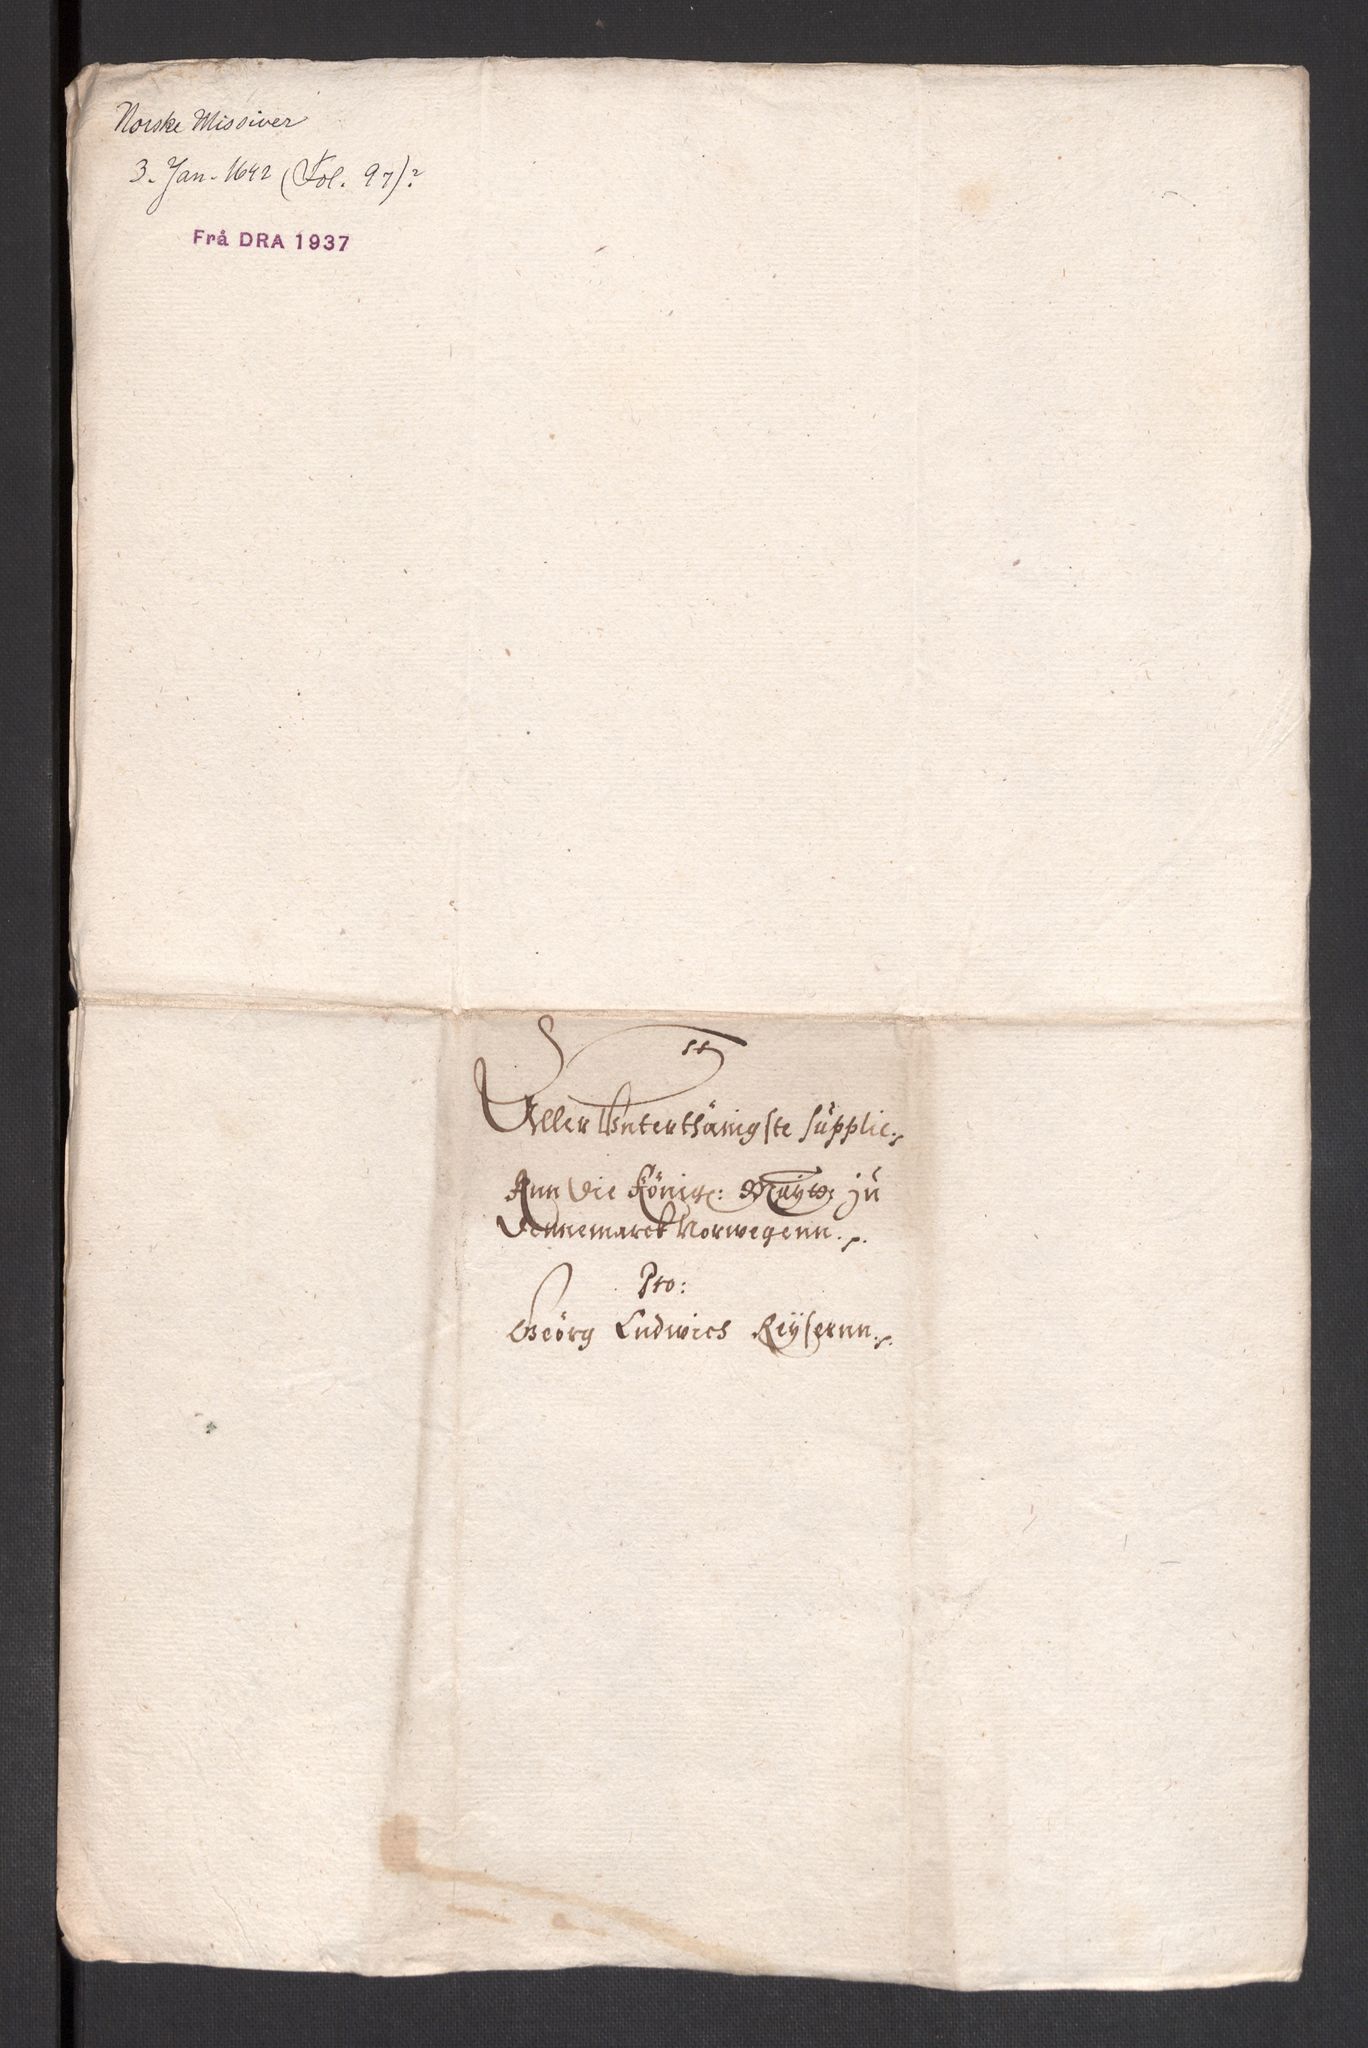 Norske Missiver
3. Jan. 1642 (Fol. 97)?
Frå DRA 1937
Aller Unterthänigste supplic.
Ann Die Königl: Maytt: zu
Dennemarck Norwegenn.
Pro:
Geörg Ludwich Reÿsernn.